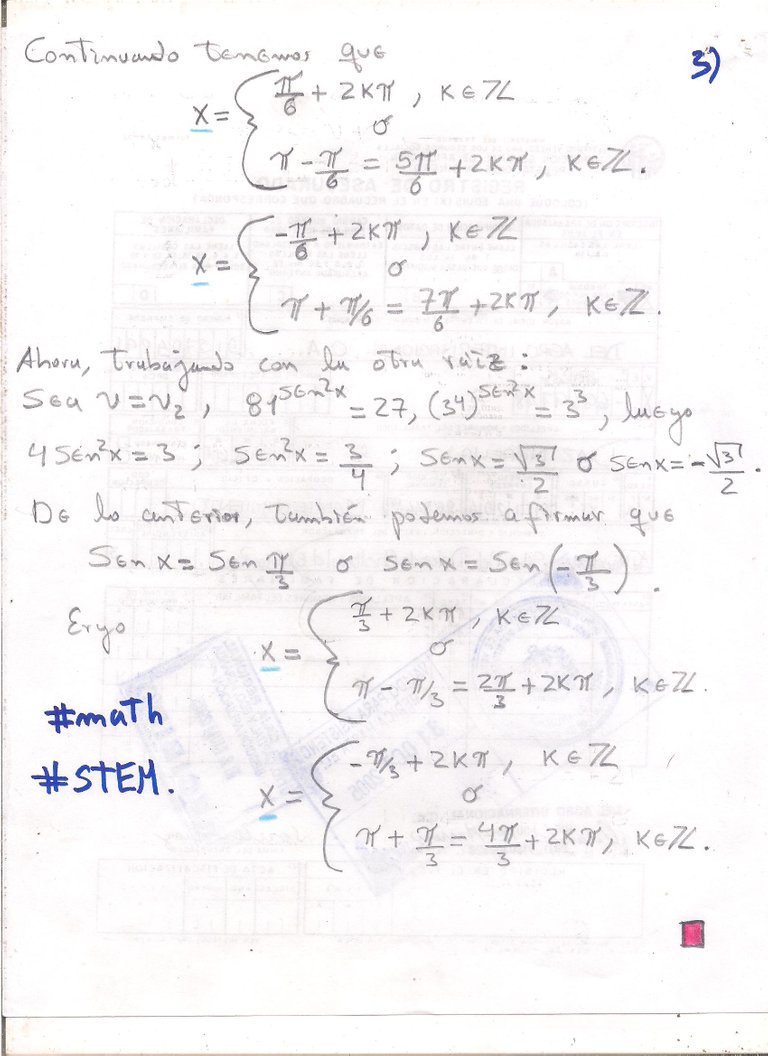 Continuando tenemos que
3)
x = { π/6 + 2kπ, k∈ℤ
ó
π - π/6 = 5π/6 + 2kπ, k∈ℤ.
x = { -π/6 + 2kπ, k∈ℤ
ó
π + π/6 = 7π/6 + 2kπ, k∈ℤ.
Ahora, trabajando con la otra raíz:
Sea v = v₂, 81^(sen²x) = 27, (3⁴)^(sen²x) = 3³, luego
4 sen²x = 3; sen²x = 3/4; sen x = √3/2 ó sen x = -√3/2.
De lo anterior, también podemos afirmar que
Sen x = Sen π/3 ó sen x = sen(-π/3).
Ergo
x = { π/3 + 2kπ, k∈ℤ
ó
π - π/3 = 2π/3 + 2kπ, k∈ℤ.
#math
#STEM.
x = { -π/3 + 2kπ, k∈ℤ
ó
π + π/3 = 4π/3 + 2kπ, k∈ℤ.